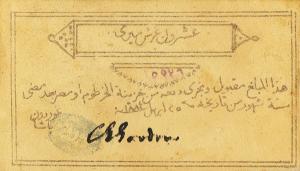 عشرون غرش ميري
هذا المبلغ مقبول ويجري دفعه من خزينة الخرطوم او مصر بعد مضي
ستة شهور من تاريخه ٢٥ ابريل
غوردون
باشا